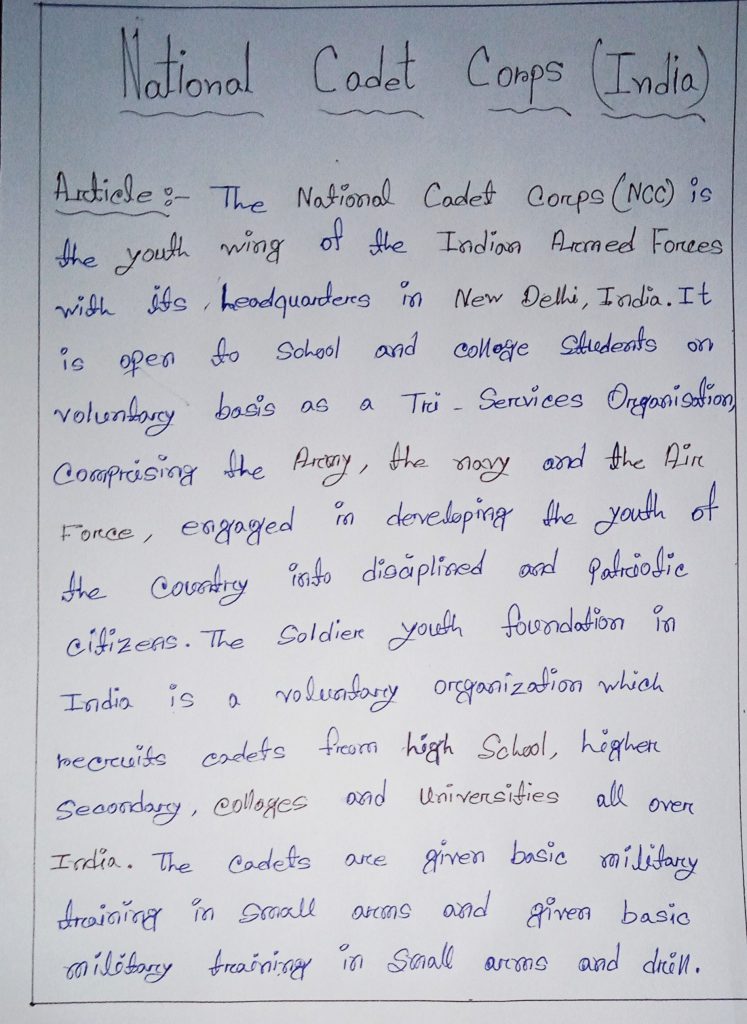 National Cadet Corps (India)
Article :- The National Cadet Corps (NCC) is
the youth wing of the Indian Armed Forces
with its headquarters in New Delhi, India. It
is open to School and college Students on
voluntary basis as a Tri - Services Organisation,
Comprising the Army, the navy and the Air
Force, engaged in developing the youth of
the Country into disciplined and Patriotic
citizens. The Soldier youth foundation in
India is a voluntary organization which
recruits cadets from high School, higher
Secondary, collages and Universities all over
India. The Cadets are given basic military
training in Small arms and given basic
military training in Small arms and drill.